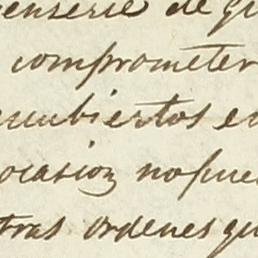 enserie de qu
comprometer
cubiertos en
ocasion nopue
tras ordenes qu